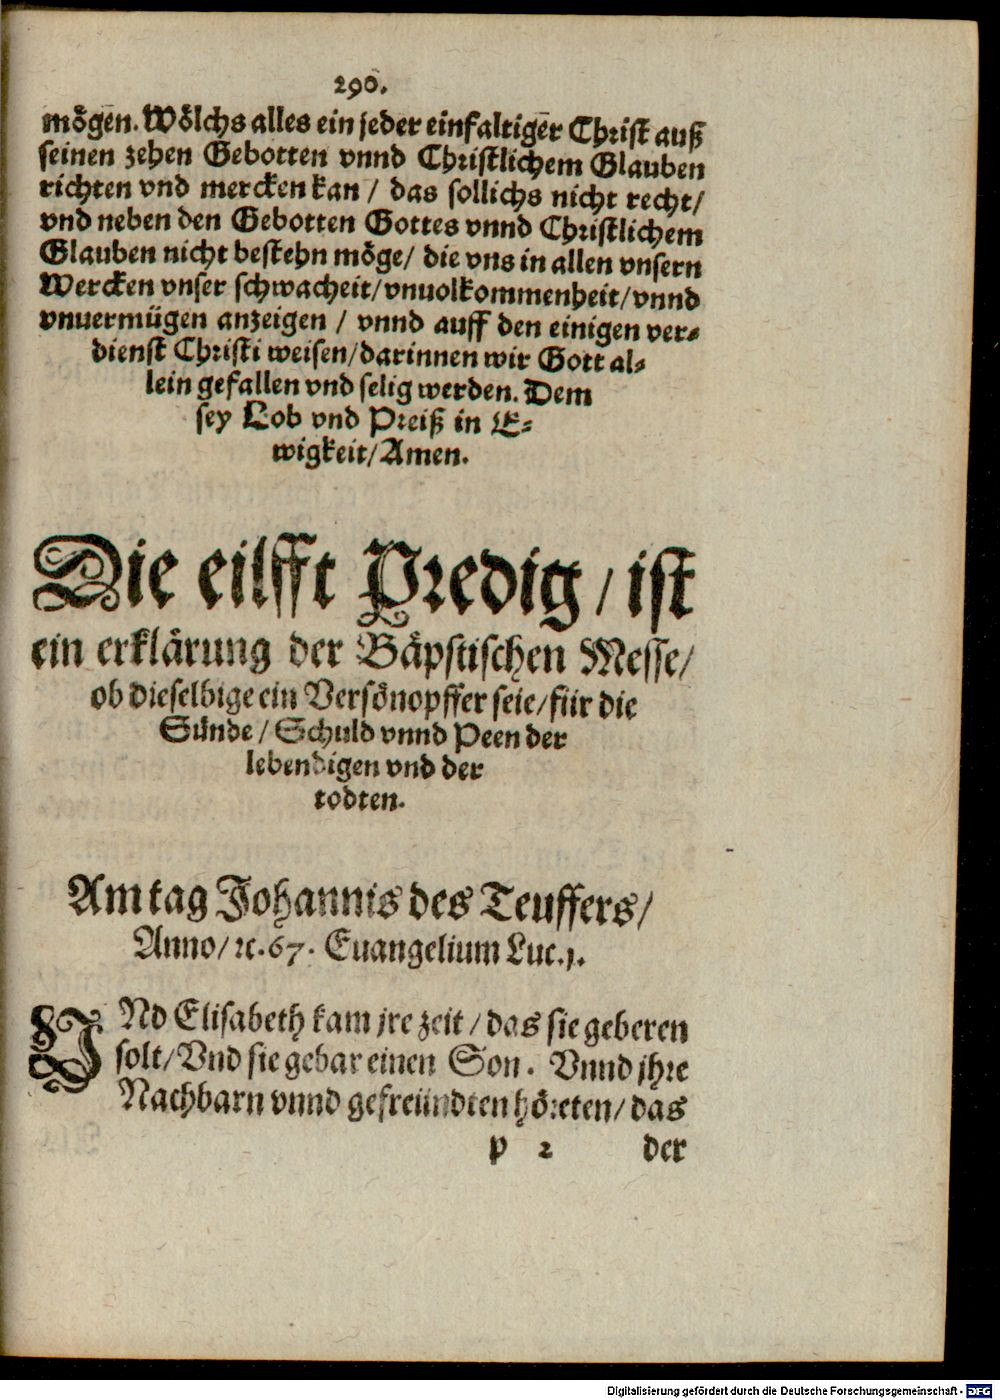 290.
mögen. Wölchs alles ein jeder einfaltiger Christ auß
seinen zehen Gebotten vnnd Christlichem Glauben
richten vnd mercken kan / das sollichs nicht recht /
vnd neben den Gebotten Gottes vnnd Christlichem
Glauben nicht bestehn möge / die vns in allen vnsern
Wercken vnser schwacheit / vnuolkommenheit / vnnd
vnuermügen anzeigen / vnnd auff den einigen ver⸗
dienst Christi weisen / darinnen wir Gott al⸗
lein gefallen vnd selig werden. Dem
sey Lob vnd Preiß in E⸗
wigkeit / Amen.
Die eilfft Predig / ist
ein erklärung der Bäpstischen Messe /
ob dieselbige ein Versönopffer seie / für die
Sünde / Schuld vnnd Peen der
lebendigen vnd der
todten.
Am tag Johannis des Teuffers /
Anno / ꝛc. 67. Euangelium Luc. j.
VNd Elisabeth kam jre zeit / das sie geberen
solt / Vnd sie gebar einen Son. Vnnd jhre
Nachbarn vnnd gefreündten höreten / das
p 2 der
Digitalisierung gefördert durch die Deutsche Forschungsgemeinschaft - DFG